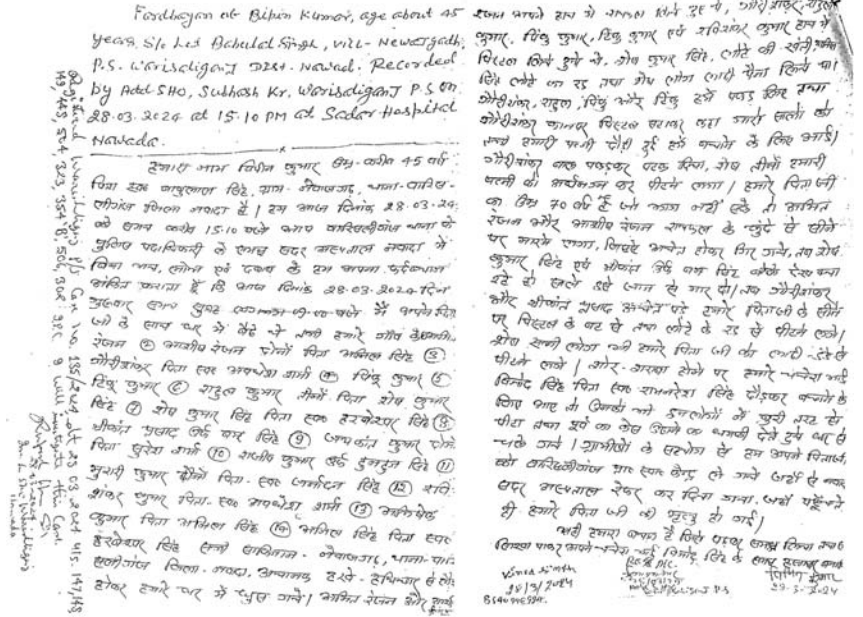 Fardbayan of Bipin Kumar, age about 45
years, S/o Let Babulal Singh, vill- Newazgadh,
P.S. Warisaliganj Dist. Nawad. Recorded
by Addl SHO, Subhash Kr. Warisaliganj P.S on
28.03.2024 at 15.10 PM at Sadar Hospital
Nawada.
हमारा नाम विपीन कुमार उम्र-करीब 45 वर्ष
पिता स्व० बाबुलाल सिंह, ग्राम-नेवाजगढ़, थाना-वारिस-
लीगंज जिला नवादा है। हम आज दिनांक 28.03.24
को समय करीब 15:10 बजे आप वारिसलीगंज थाना के
पुलिस पदाधिकारी के समक्ष सदर अस्पताल नवादा में
बिना भय, लोभ एवं दबाव के हम अपना फर्दबयान
अंकित कराता हूँ कि आज दिनांक 28.03.2024 दिन
गुरुवार समय सुबह बजे मैं अपने पिता
जी के साथ घर में बैठे थे तभी हमारे गाँव के
रंजन ② आशीष रंजन दोनों पिता अनिल सिंह ③
गौरीशंकर पिता स्व० अवधेश शर्मा ④ पिंकु कुमार ⑤
टिंकु कुमार ⑥ राहुल कुमार तीनों पिता शेष कुमार
सिंह ⑦ शेष कुमार सिंह पिता स्व० हरकेश्वर सिंह ⑧
श्रीकांत प्रसाद उर्फ सिंह ⑨ कुमार
पिता शर्मा ⑩ राजीव कुमार उर्फ सिंह ⑪
मुरारी कुमार दोनों पिता-स्व० जनार्दन सिंह ⑫ रवि
शंकर कुमार पिता-स्व० अवधेश शर्मा ⑬ अभिषेक
कुमार पिता अनिल सिंह ⑭ अनिल सिंह पिता स्व०
हरकेश्वर सिंह सभी साकिनान-नेवाजगढ़, थाना-वारि-
सलीगंज जिला-नवादा, अचानक हरवे-हथियार से लैस
होकर हमारे घर में घुस गये। अमित रंजन और
रंजन अपने हाथ में रायफल लिये हुए थे, गौरीशंकर, राहुल
कुमार, पिंकु कुमार, टिंकु कुमार एवं रविशंकर कुमार हाथ में
पिस्टल लिये हुये थे, शेष कुमार सिंह, लोहे की
सिंह लोहे का रड तथा शेष लोग लाठी लिये था।
गौरीशंकर, राहुल, पिंकु और टिंकु हमें पकड़ लिए तथा
गौरीशंकर कानपर पिस्टल सटाकर कहा मारो साले को
तभी हमारी पत्नी दौड़ी हुई हमें बचाने के लिए आई।
गौरीशंकर बाल पकड़कर पटक दिया, शेष तीनों हमारी
पत्नी को कर पीटने लगा। हमारे पिता जी
का उम्र 70 वर्ष है जो तो अमित
रंजन और आशीष रंजन रायफल के कुंदे से सीने
पर मारने लगा, जिससे अचेत होकर गिर गये, तब शेष
कुमार सिंह एवं श्रीकांत उर्फ सिंह बोले देख क्या
रहे हो साले इसे जान से मार दो। तब गौरीशंकर
और श्रीकांत प्रसाद अचेत पड़े हमारे पिताजी के सीने
पर पिस्टल के बट से तथा लोहे के रड से पीटने लगे।
शेष सभी लोग भी हमारे पिता जी को लाठी-डंडे से
पीटने लगे। शोर-शराबा होने पर हमारे चचेरा भाई
विनोद सिंह पिता स्व० रामनरेश सिंह दौड़कर बचाने के
लिए आए तो उनको भी इनलोगों ने बुरी तरह से
पीटा तथा पूर्व का केस उठाने का धमकी देते हुए घर से
चले गये। ग्रामीणों के सहयोग से हम अपने पिताजी
को वारिसलीगंज स्वा० केन्द्र ले गये जहाँ से
सदर अस्पताल रेफर कर दिया गया, जहाँ पहुँचते
ही हमारे पिता जी की मृत्यु हो गई।
यही हमारा बयान है जिसे पढ़कर समझ लिया तथा
लिखा पाकर अपने चचेरा भाई विनोद सिंह के समक्ष हस्ताक्षर बनाया
Vinod Singh
28/3/2024
28-3-2024
Registered Warisaliganj P/S Case no. 155/2024 dt 28.03.2024 u/s. 147,148
149, 448, 504, 323, 354 'B', 506, 302 IPC I will
investigate this case.
Nawada